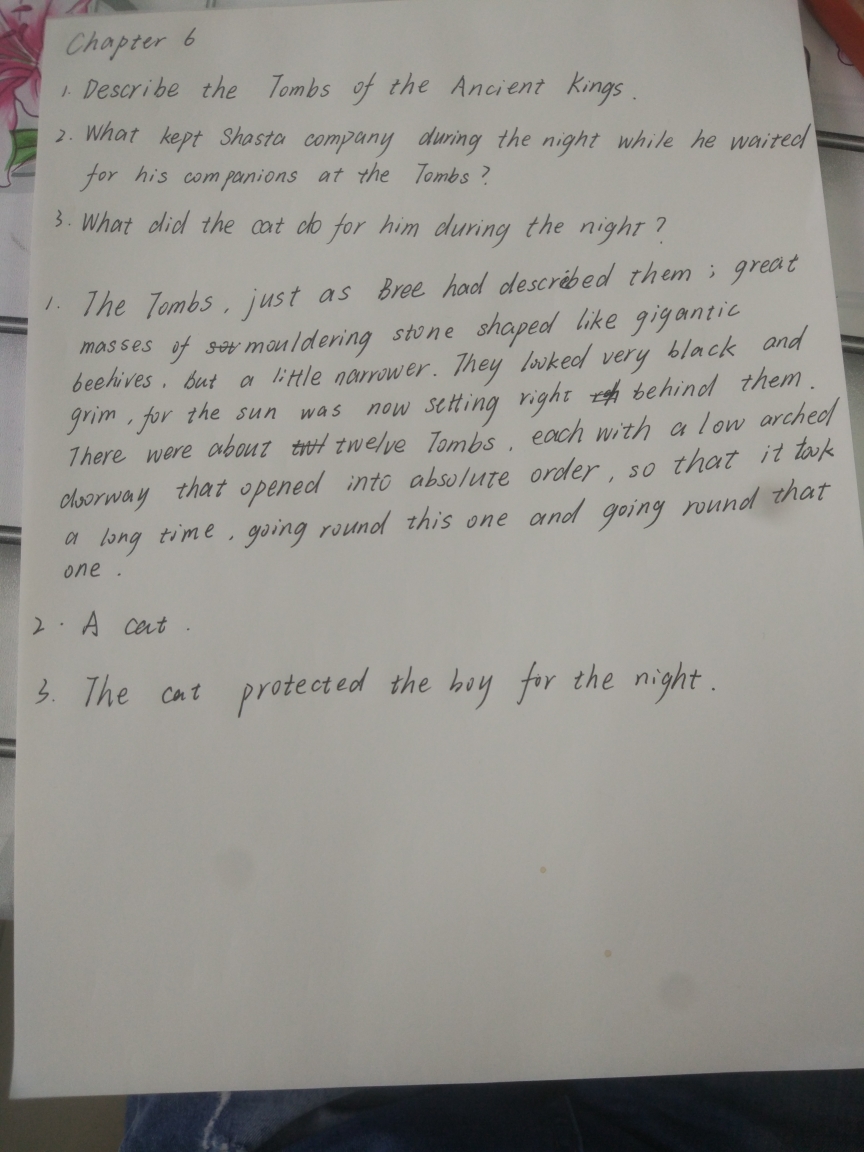 Chapter 6
1. Describe the Tombs of the Ancient Kings.
2. What kept Shasta company during the night while he waited
for his companions at the Tombs?
3. What did the cat do for him during the night?
1. The Tombs, just as Bree had described them; great
masses of mouldering stone shaped like gigantic
beehives, but a little narrower. They looked very black and
grim, for the sun was now setting right behind them.
There were about twelve Tombs, each with a low arched
doorway that opened into absolute order, so that it took
a long time, going round this one and going round that
one.
2. A cat.
3. The cat protected the boy for the night.